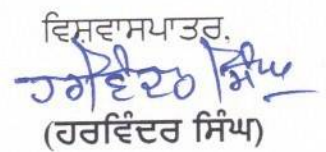 ਵਿਸ਼ਵਾਸਪਾਤਰ,
ਹਰਵਿੰਦਰ ਸਿੰਘ
(ਹਰਵਿੰਦਰ ਸਿੰਘ)